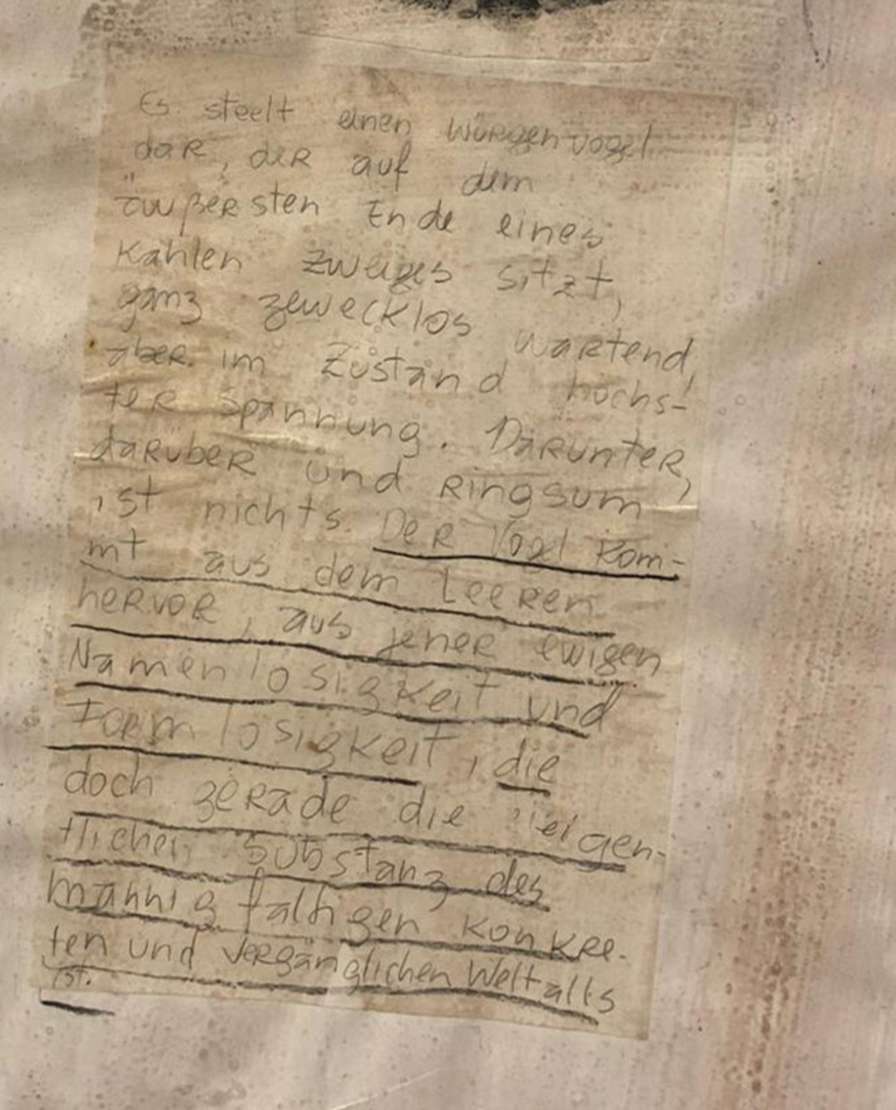 Es steelt einen Würgenvogel
dar, der auf dem
äußersten Ende eines
Kahlen zweiges sitzt,
ganz zewecklos wartend,
aber im Zustand höchs-
ter Spannung. Darunter,
daruber und Ringsum
ist nichts. Der Vogl kom-
mt aus dem Leeren
hervor, aus jener ewigen
Namenlosigkeit und
Formlosigkeit, die
doch gerade die eigen-
tlichen Substanz des
mannigfaltigen Konkre-
ten und vergänglichen Weltalls
ist.